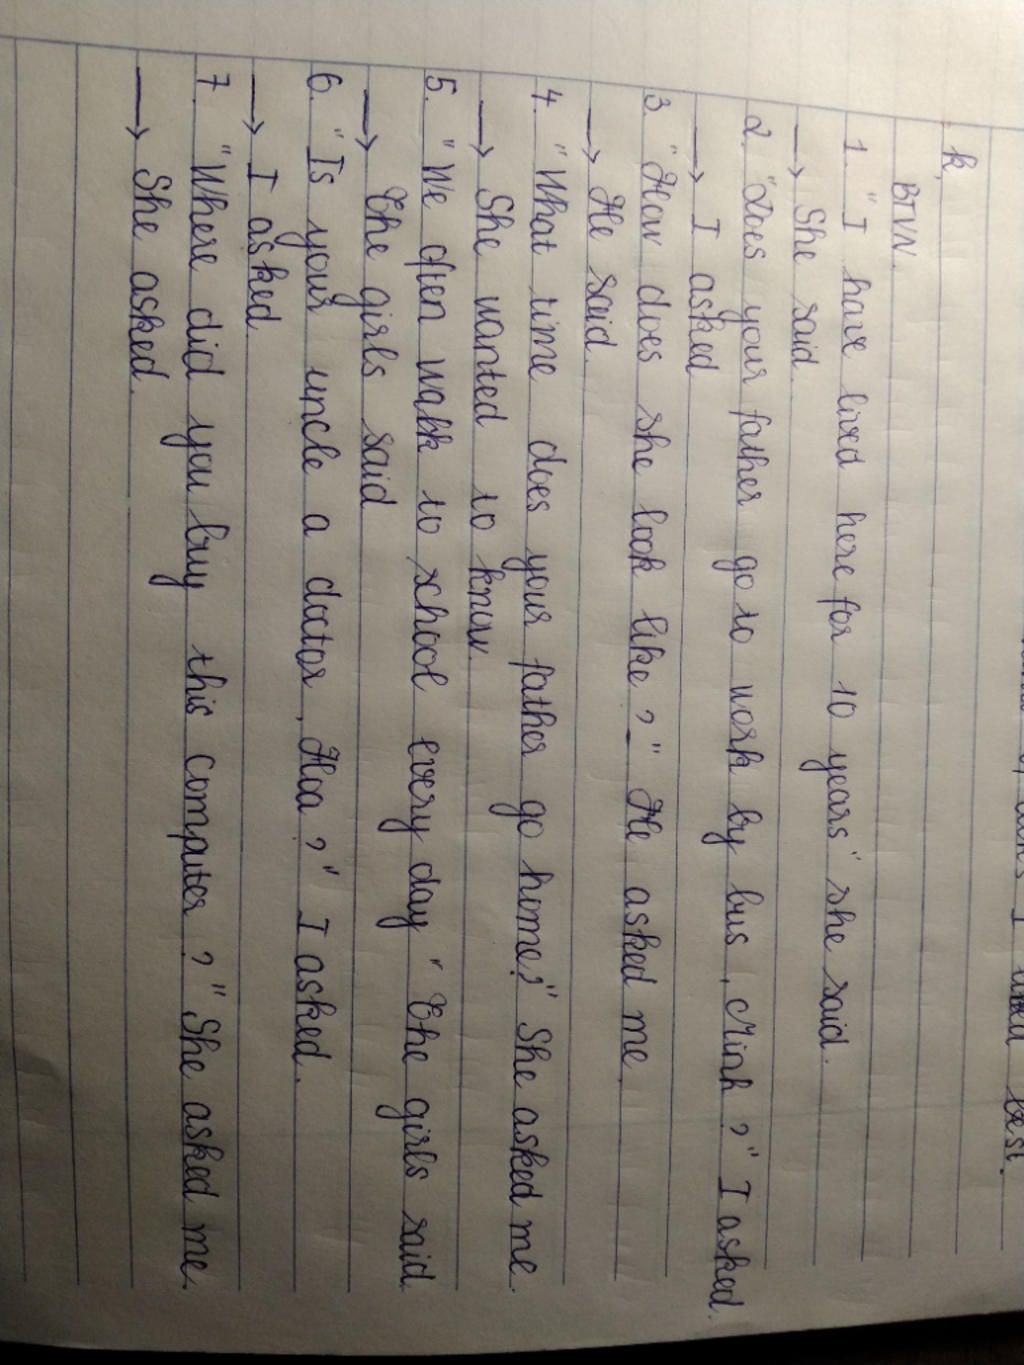 k,
BTVN.
1. "I have lived here for 10 years" she said.
→ She said.
2. "Does your father go to work by bus, Minh?" I asked.
→ I asked
3. "How does she look like?" He asked me.
→ He said.
4. "What time does your father go home?" She asked me.
→ She wanted to know.
5. "We often walk to school every day" The girls said.
→ The girls said
6. "Is your uncle a doctor, Hoa?" I asked.
→ I asked.
7. "Where did you buy this computer?" She asked me.
→ She asked.